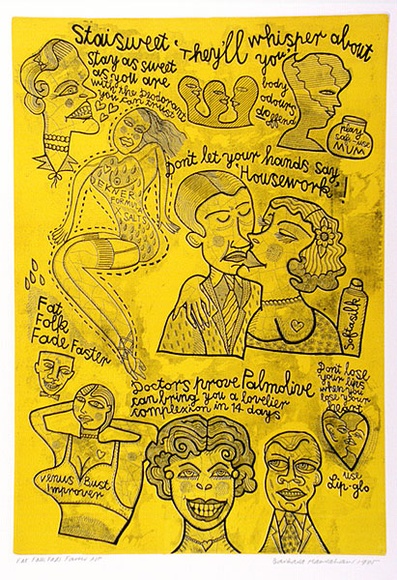 Staisweet 'They'll whisper about you'
Stay as sweet
as you are
with the Deodorant
you can trust
body
odours
do offend
Mum
Don't let your hands say
'Housework'!
FORMULA
SALTS
Softasilk
Fat
Folk
Fade Faster
Doctors prove Palmolive
can bring you a lovelier
complexion in 14 days
Dont lose
your lips
when you
lose your
heart
use
Lip-glo
Venus Bust
Improver